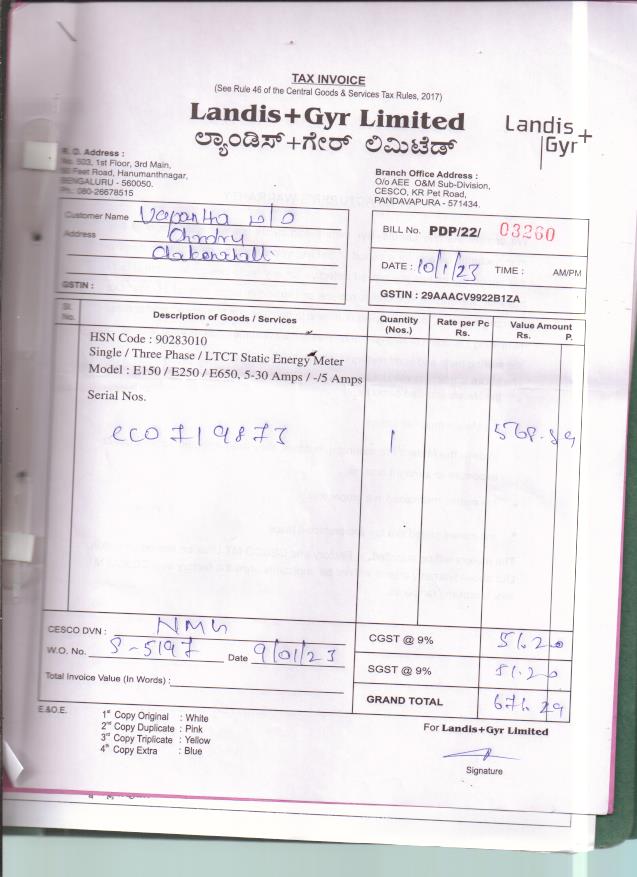 TAX INVOICE
(See Rule 46 of the Central Goods & Services Tax Rules, 2017)
Landis+Gyr Limited
ಲ್ಯಾಂಡಿಸ್+ಗೇರ್ ಲಿಮಿಟೆಡ್
Landis+
Gyr
R. O. Address :
No. 503, 1st Floor, 3rd Main,
Feet Road, Hanumanthnagar,
BENGALURU - 560050.
Ph.: 080-26678515
Branch Office Address :
O/o AEE O&M Sub-Division,
CESCO, KR Pet Road,
PANDAVAPURA - 571434.
Customer Name
Address
GSTIN :
BILL No. PDP/22/ 03260
DATE : 10/1/23 TIME : AM/PM
GSTIN : 29AAACV9922B1ZA
Sl. No. Description of Goods / Services Quantity (Nos.) Rate per Pc Rs. Value Amount Rs. P.
HSN Code : 90283010
Single / Three Phase / LTCT Static Energy Meter
Model : E150 / E250 / E650, 5-30 Amps / -/5 Amps
Serial Nos.
1 568.89
CESCO DVN : NMG
W.O. No. S-5197 Date 9/01/23
Total Invoice Value (In Words) :
CGST @ 9% 51.20
SGST @ 9% 51.20
GRAND TOTAL 671.29
E.&O.E.
1st Copy Original : White
2nd Copy Duplicate : Pink
3rd Copy Triplicate : Yellow
4th Copy Extra : Blue
For Landis+Gyr Limited
Signature